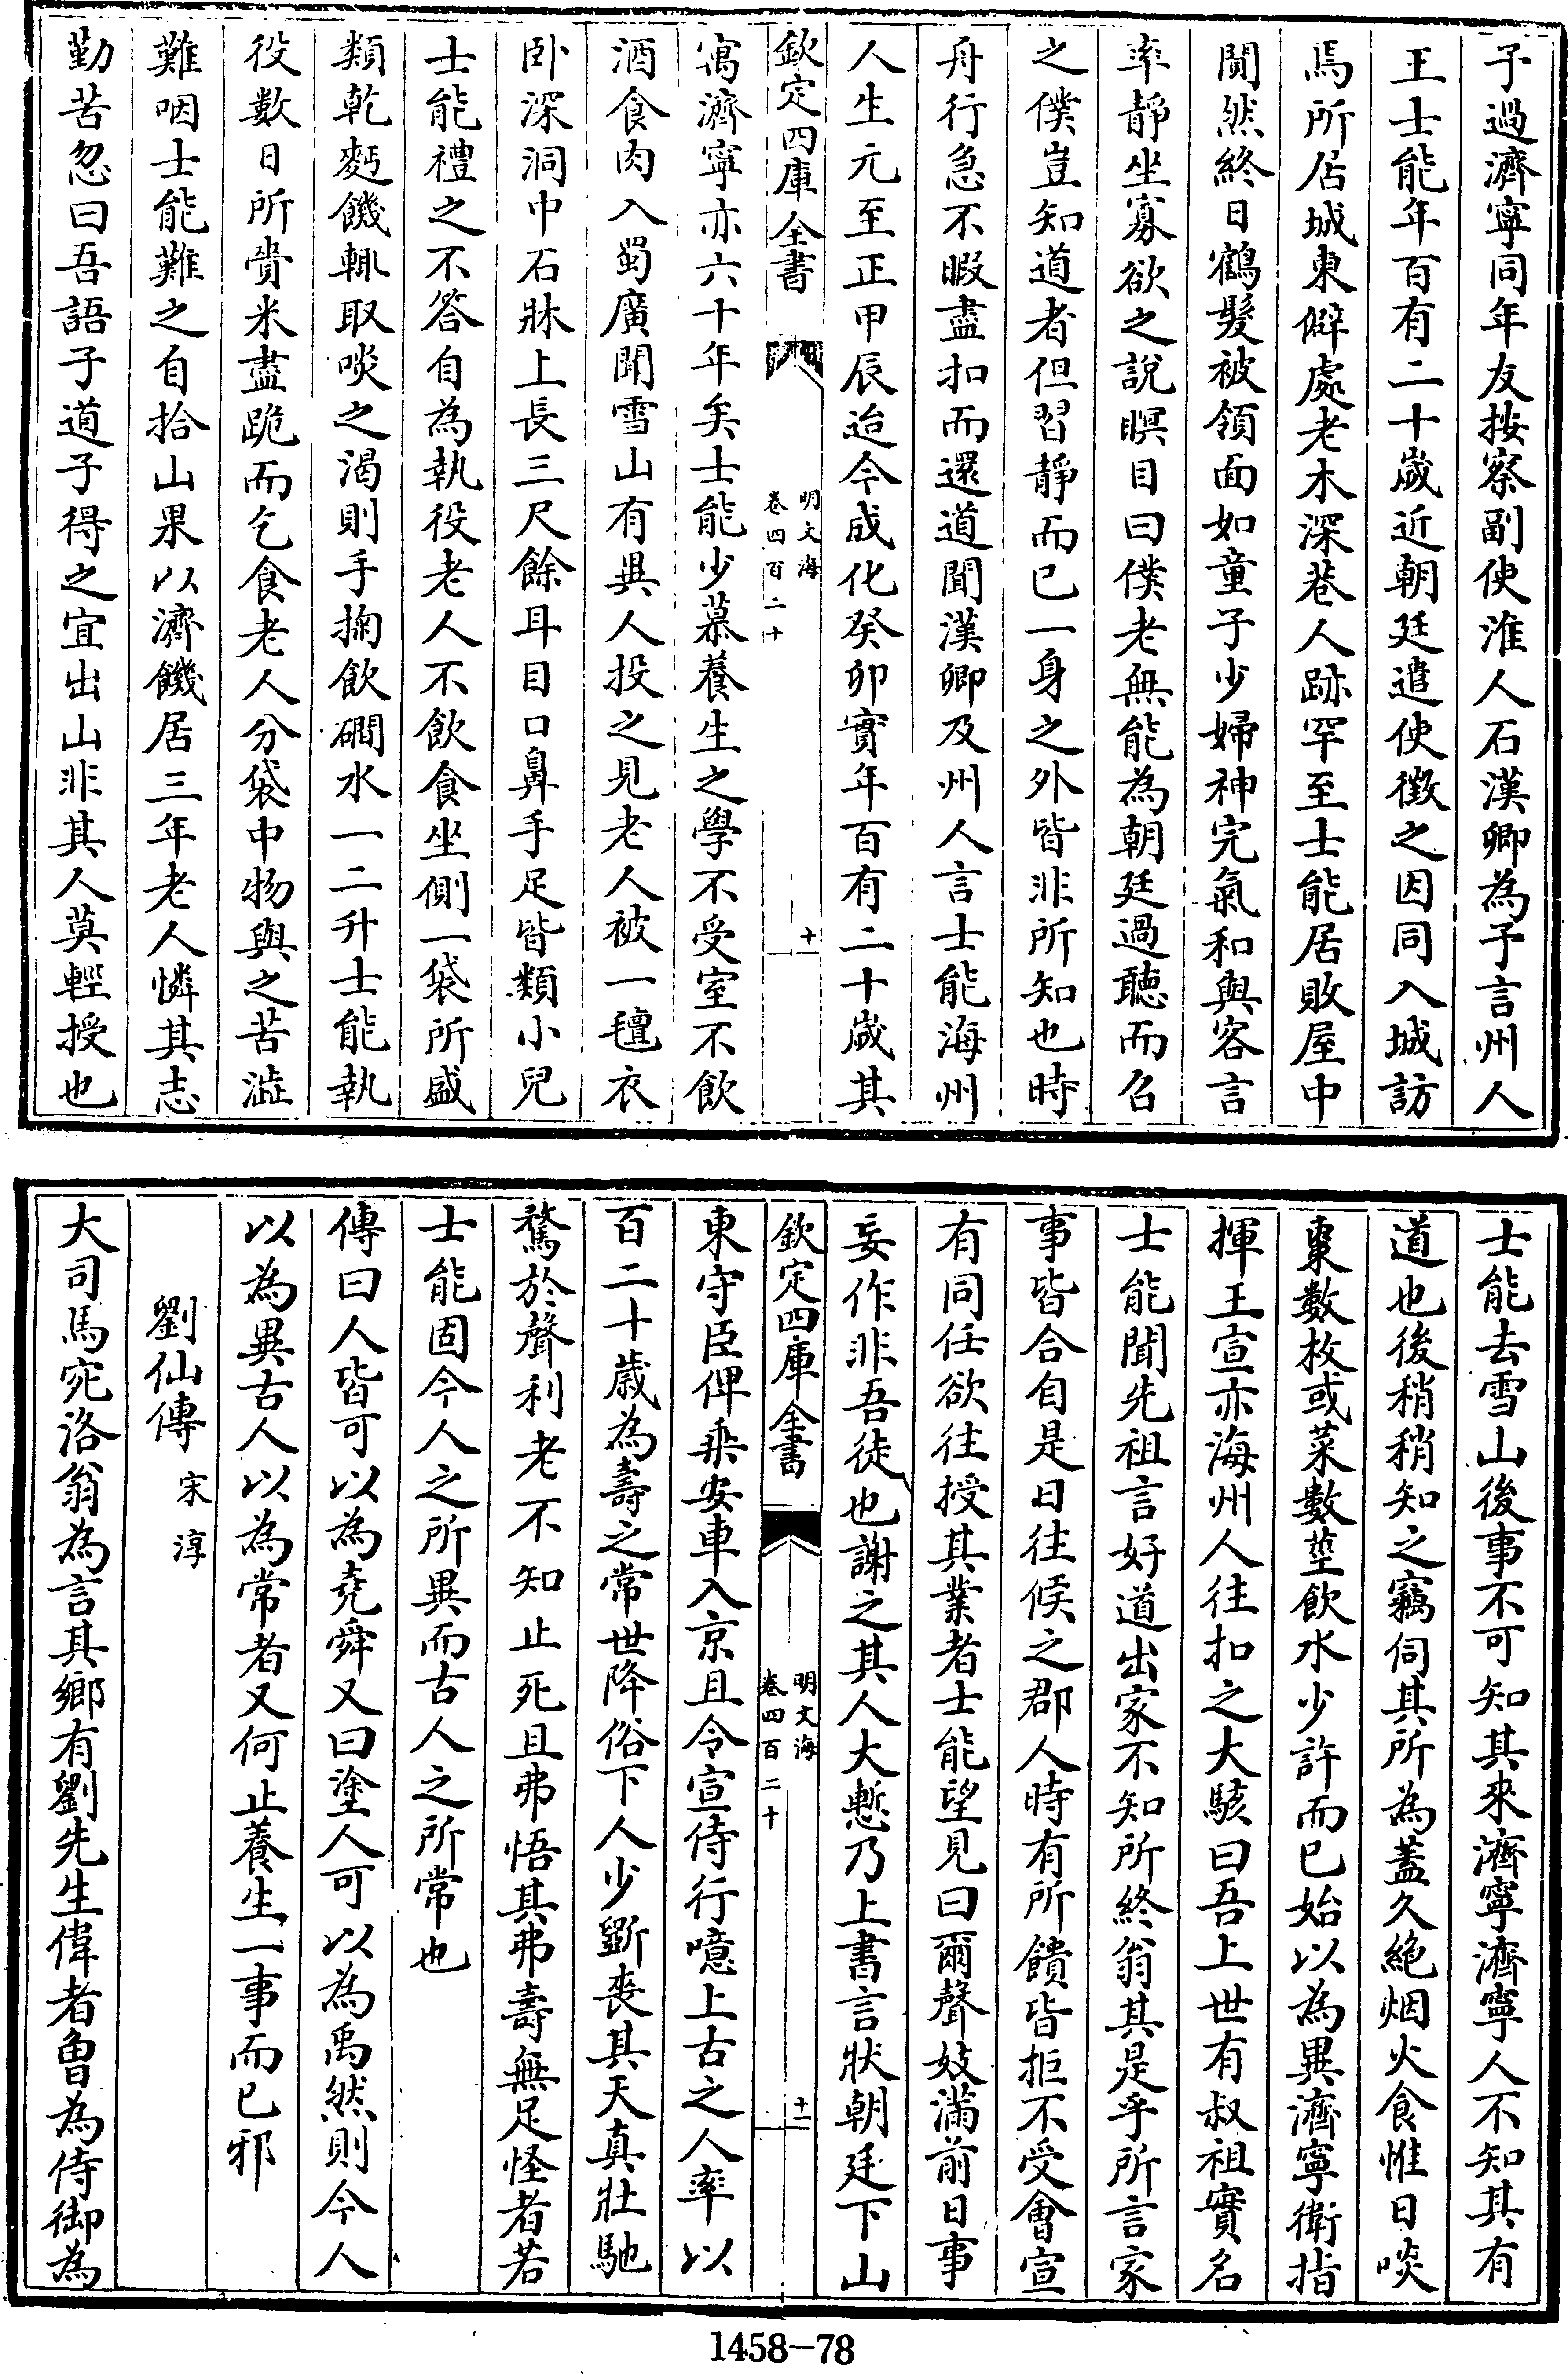 予過濟寧同年友按察副使淮人石漢卿為予言州人
王士能年百有二十歲近朝廷遣使徵之因同入城訪
焉所居城東僻處老木深巷人跡罕至士能居敗屋中
閴然終日鶴髮被領面如童子少婦神完氣和與客言
率靜坐寡欲之說瞑目曰僕老無能為朝廷過聽而召
之僕豈知道者但習靜而已一身之外皆非所知也時
舟行急不暇盡扣而還道聞漢卿及州人言士能海州
人生元至正甲辰迨今成化癸卯實年百有二十歲其
欽定四庫全書
明文海
卷四百二十
十
寓濟寧亦六十年矣士能少慕養生之學不受室不飲
酒食肉入蜀廣聞雪山有異人投之見老人被一氊衣
卧深洞中石牀上長三尺餘耳目口鼻手足皆類小兒
士能禮之不答自為執役老人不飲食坐側一袋所盛
類乾麪饑輒取啖之渴則手掬飲磵水一二升士能執
役數日所賫米盡跪而乞食老人分袋中物與之苦澁
難咽士能難之自拾山果以濟饑居三年老人憐其志
勤苦忽曰吾語子道子得之宜出山非其人莫輕授也
士能去雪山後事不可知其來濟寧濟寧人不知其有
道也後稍稍知之竊伺其所為蓋久絶烟火食惟日啖
棗數枚或菜數莖飲水少許而已始以為異濟寧衛指
揮王宣亦海州人往扣之大駭曰吾上世有叔祖實名
士能聞先祖言好道出家不知所終翁其是乎所言家
事皆合自是日往候之郡人時有所饋皆拒不受會宣
有同任欲往授其業者士能望見曰爾聲妓滿前日事
妄作非吾徒也謝之其人大慙乃上書言狀朝廷下山
欽定四庫全書
明文海
卷四百二十
十一
東守臣俾乘安車入京且令宣侍行噫上古之人率以
百二十歲為壽之常世降俗下人少斵喪其天真壯馳
騖於聲利老不知止死且弗悟其弗壽無足怪者若
士能固今人之所異而古人之所常也
傳曰人皆可以為堯舜又曰塗人可以為禹然則今人
以為異古人以為常者又何止養生一事而已邪
劉仙傳　宋淳
大司馬宛洛翁為言其鄉有劉先生偉者魯為侍御為
1458-78